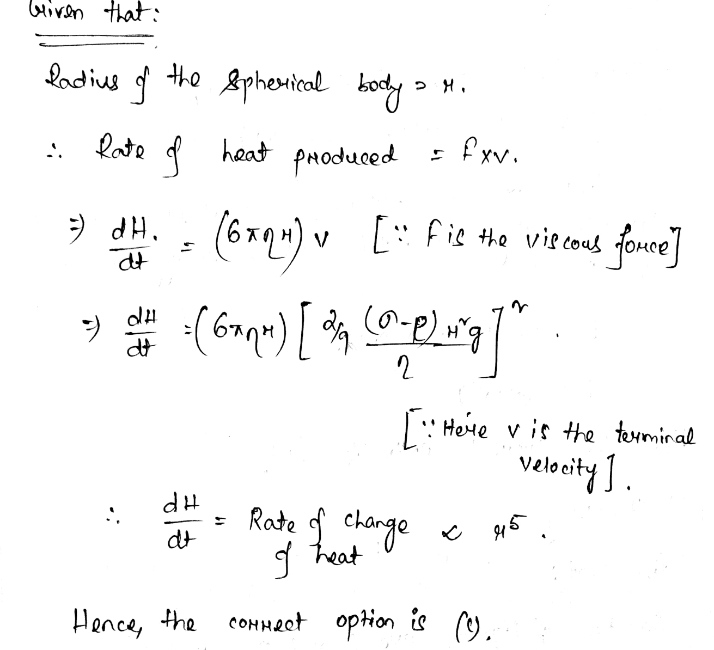 Given that:
Radius of the spherical body = r.
∴ Rate of heat produced = F×v.
⇒ dH/dt. = (6πηr) v [∵ F is the viscous force]
⇒ dH/dt = (6πηr) [2/9 (σ-ρ) r²g / η]²
[∵ Here v is the terminal
velocity].
∴ dH/dt = Rate of change ∝ r⁵.
of heat
Hence, the correct option is